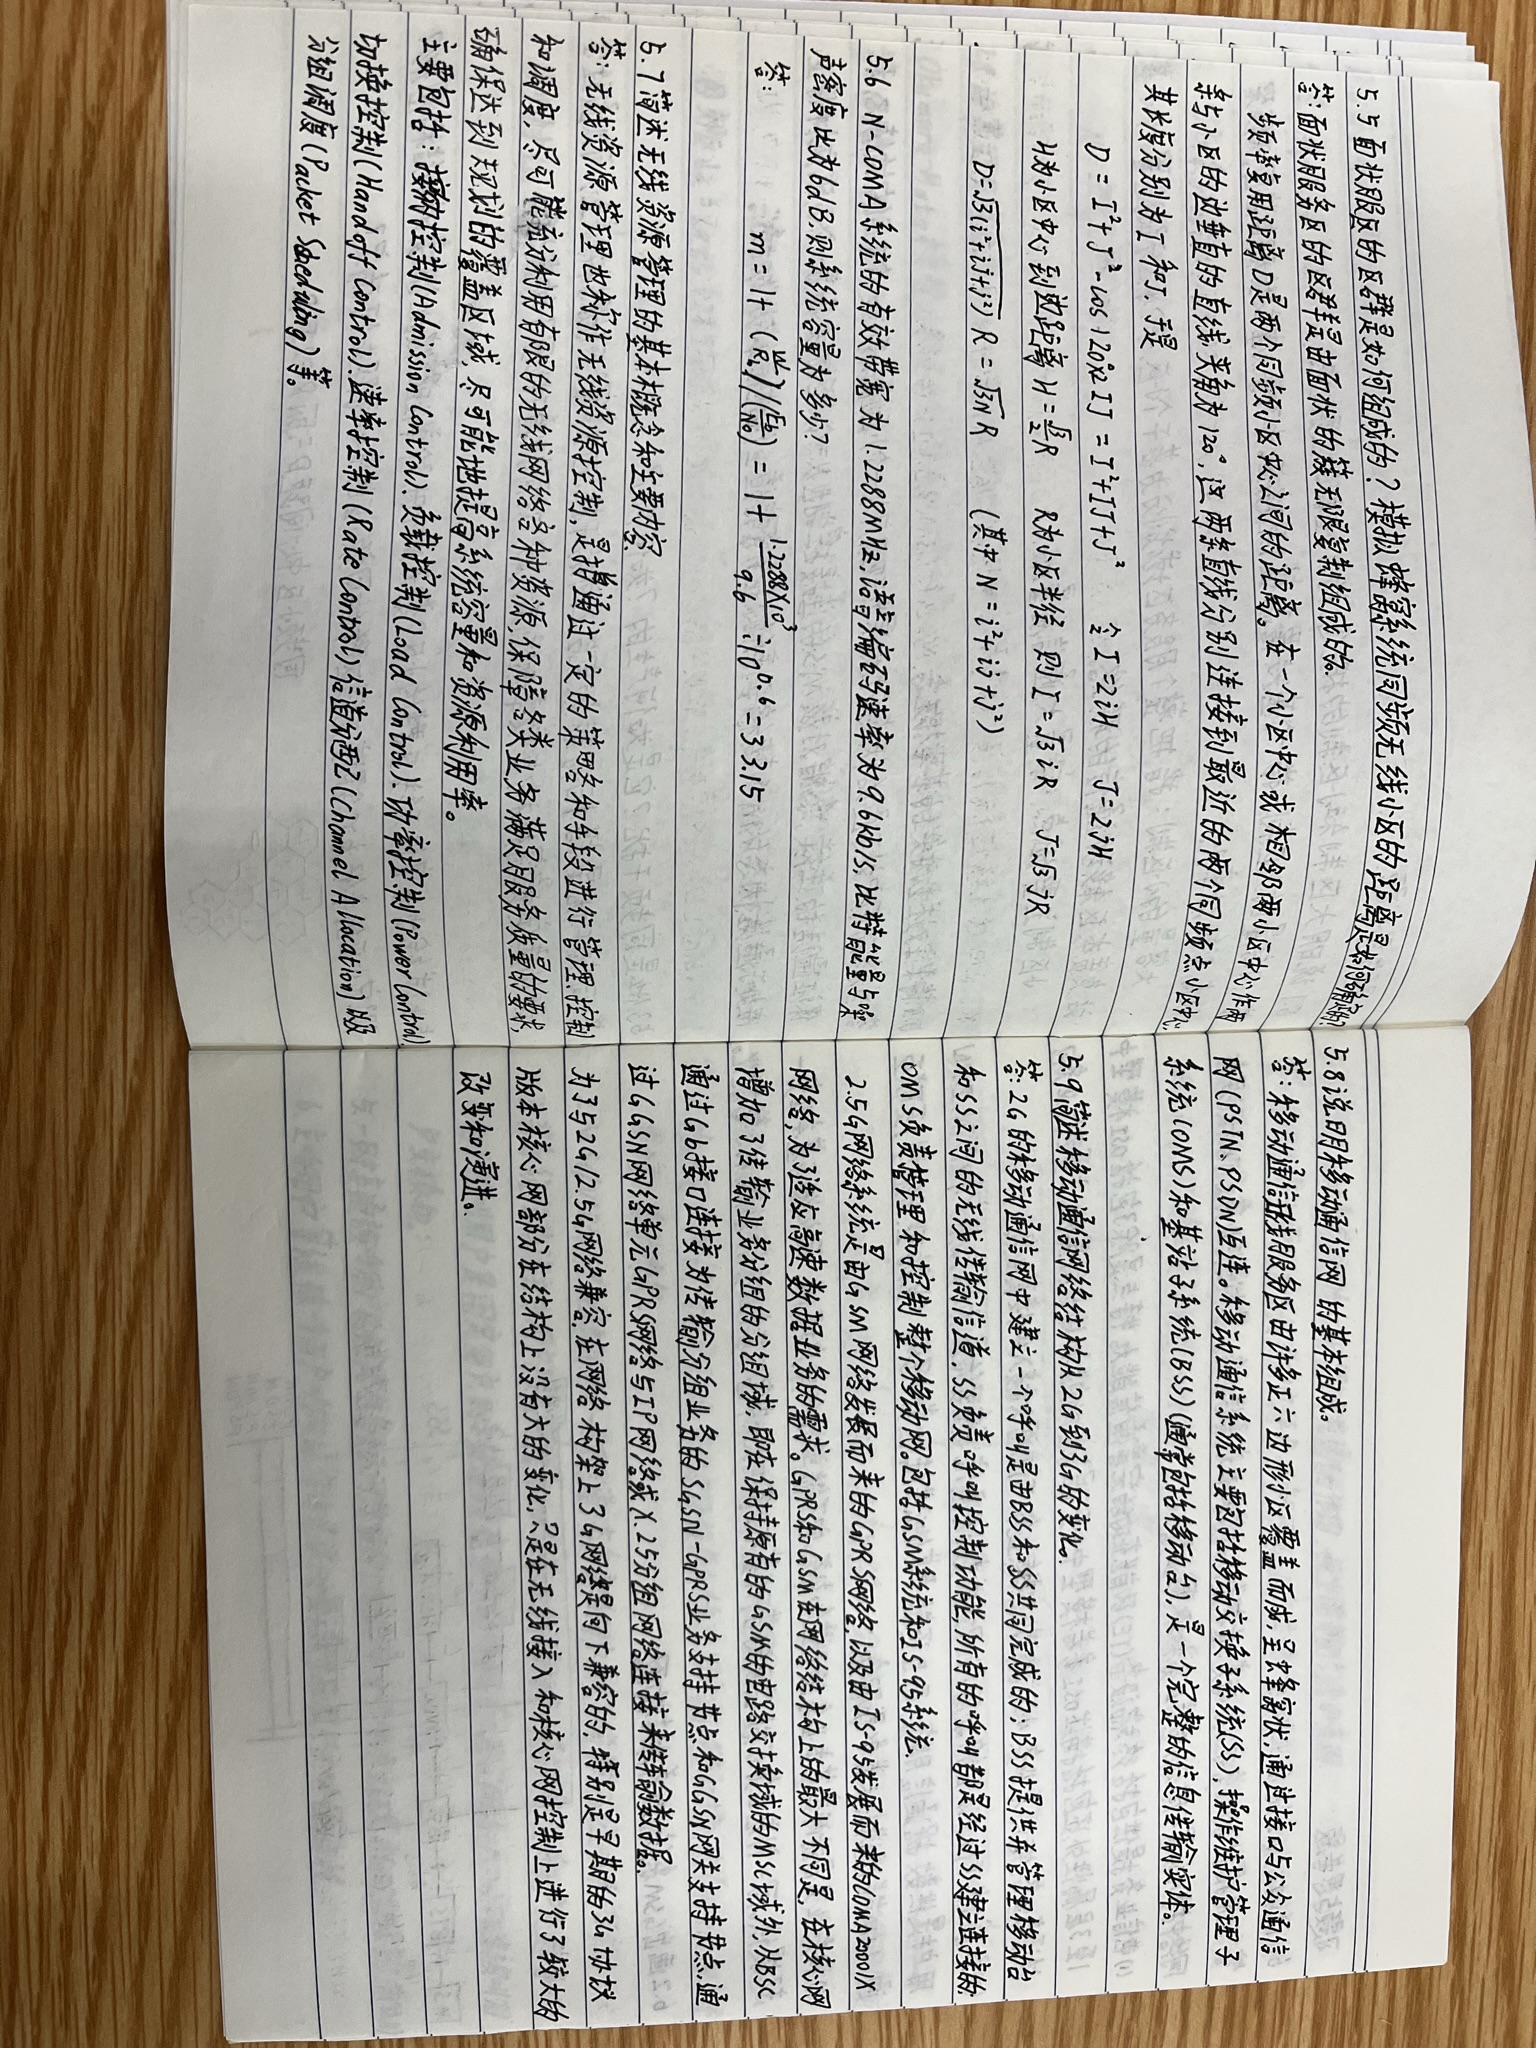 5.5 面状服区的区群是如何组成的？模拟蜂窝系统同频无线小区的距离是如何确定的？
答：面状服务区的区群是由面状的簇无限复制组成的。
频率复用距离D是两个同频小区中心之间的距离。在一个小区中心或相邻两小区中心作两
条与小区的边垂直的直线，夹角为120°，这两条直线分别连接到最近的两个同频点小区中心
其长度分别为I和J，于是
D = I²+J²-cos120°×2IJ = I²+IJ+J² 令I=2iH J=2jH
H为小区中心到边距离 H=√3/2 R R为小区半径 则I=√3iR J=√3jR
D=√3(i²+ij+j²) R = √3N R (其中N=i²+ij+j²)
5.6 N-CDMA系统的有效带宽为1.2288MHz，语音编码速率为9.6kb/s，比特能量与噪
声密度比为6dB，则系统容量为多少？
答： m = 1+ (W/Rb)/(Eb/N0) = 1+ 1.2288×10³/9.6 ÷10^0.6 = 33.15
5.7 简述无线资源管理的基本概念和主要内容
答：无线资源管理也称作无线资源控制，是指通过一定的策略和手段进行管理、控制
和调度，尽可能充分利用有限的无线网络各种资源，保障各类业务满足服务质量的要求，
确保达到规划的覆盖区域，尽可能地提高系统容量和资源利用率。
主要包括：接纳控制(Admission Control)、负载控制(Load Control)、功率控制(Power Control)、
切换控制(Handoff Control)、速率控制(Rate Control)、信道分配(Channel Allocation)及
分组调度(Packet Scheduling)等。
5.8 说明移动通信网的基本组成。
答：移动通信无线服务区由许多正六边形小区覆盖而成，呈蜂窝状，通过接口与公众通信
网(PSTN、PSDN)互连。移动通信系统主要包括移动交换子系统(SS)、操作维护管理子
系统(OMS)和基站子系统(BSS)(通常包括移动台)，是一个完整的信息传输实体。
5.9 简述移动通信网络结构从2G到3G的变化。
答：2G的移动通信网中建立一个呼叫是由BSS和SS共同完成的；BSS提供并管理移动台
和SS之间的无线传输信道，SS负责呼叫控制功能，所有的呼叫都是经过SS建立连接的；
OMS负责管理和控制整个移动网。包括GSM系统和IS-95系统.
2.5G网络系统是由GSM网络发展而来的GPRS网络，以及由IS-95发展而来的CDMA20001X
网络，为了适应高速数据业务的需求。GPRS和GSM在网络结构上的最大不同是，在核心网
增加了传输业务分组的分组域，即在保持原有的GSM的电路交换域的MSC域外，从BSC
通过Gb接口连接为传输分组业务的SGSN-GPRS业务支持节点和GGSN网关支持节点，通
过GGSN网络单元GPRS网络与IP网络或X.25分组网络连接来传输数据。
为了与2G/2.5G网络兼容，在网络构架上3G网络是向下兼容的，特别是早期的3G协议
版本核心网部分在结构上没有大的变化，只是在无线接入和核心网控制上进行了较大的
改变和演进。